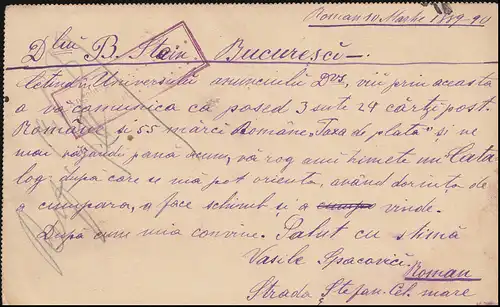 Roman 10 Martie 1889-90
Dlui B. Stain Bucuresci.
Cetind in Universul anunciulu Dvs, viu prin aceasta
a vĕ comunica ca posed 3 sute 24 cărți post.
Române si 55 mărci Române „Taxa de plata” si ne
mai vĕzênd pană acum, vă rog ami trimete un Cata
log dupà care se ma pot orienta, avênd dorinta de
a cumpara, a face schimb si a vinde.
Dupà cum mia conveni. Salut cu stimă
Vasile Spacovici
Roman
Strada Ștefan Cel mare